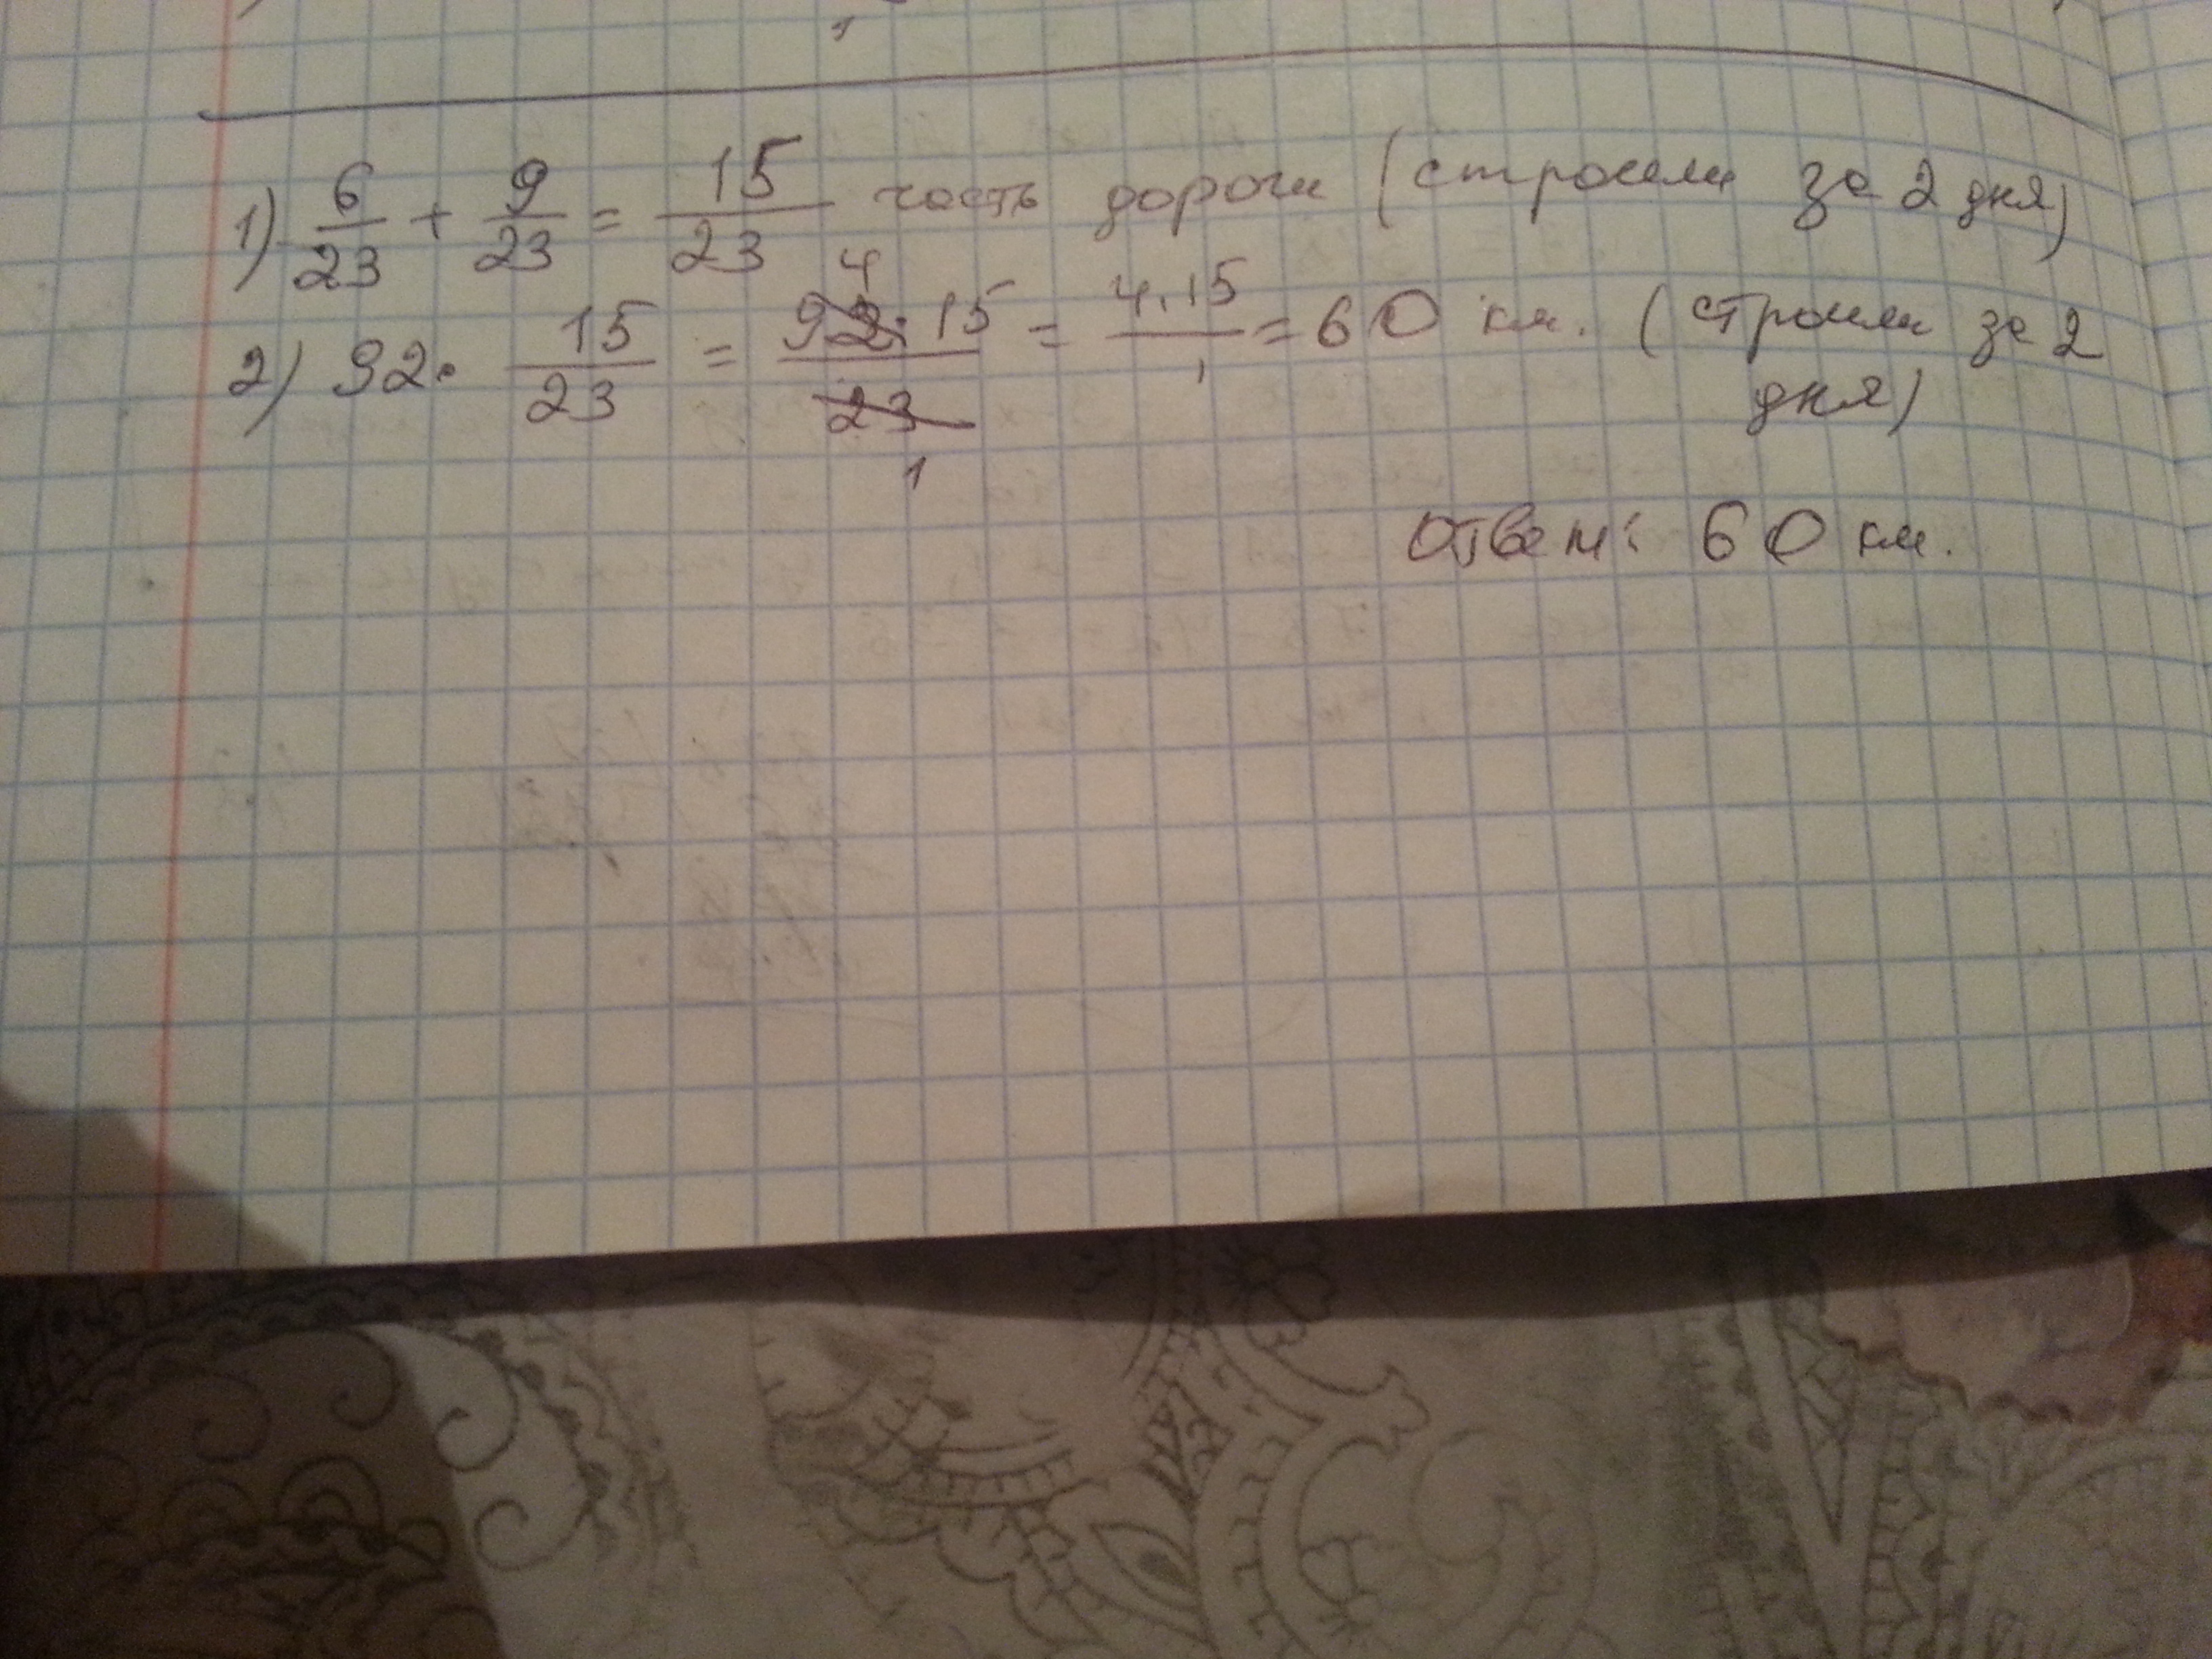 1) 6/23 + 9/23 = 15/23 часть дороги (строили за 2 дня)
2) 92 · 15/23 = 92 · 15/23 = 4 · 15/1 = 60 км. (строили за 2
4
1
дня)
Ответ: 60 км.